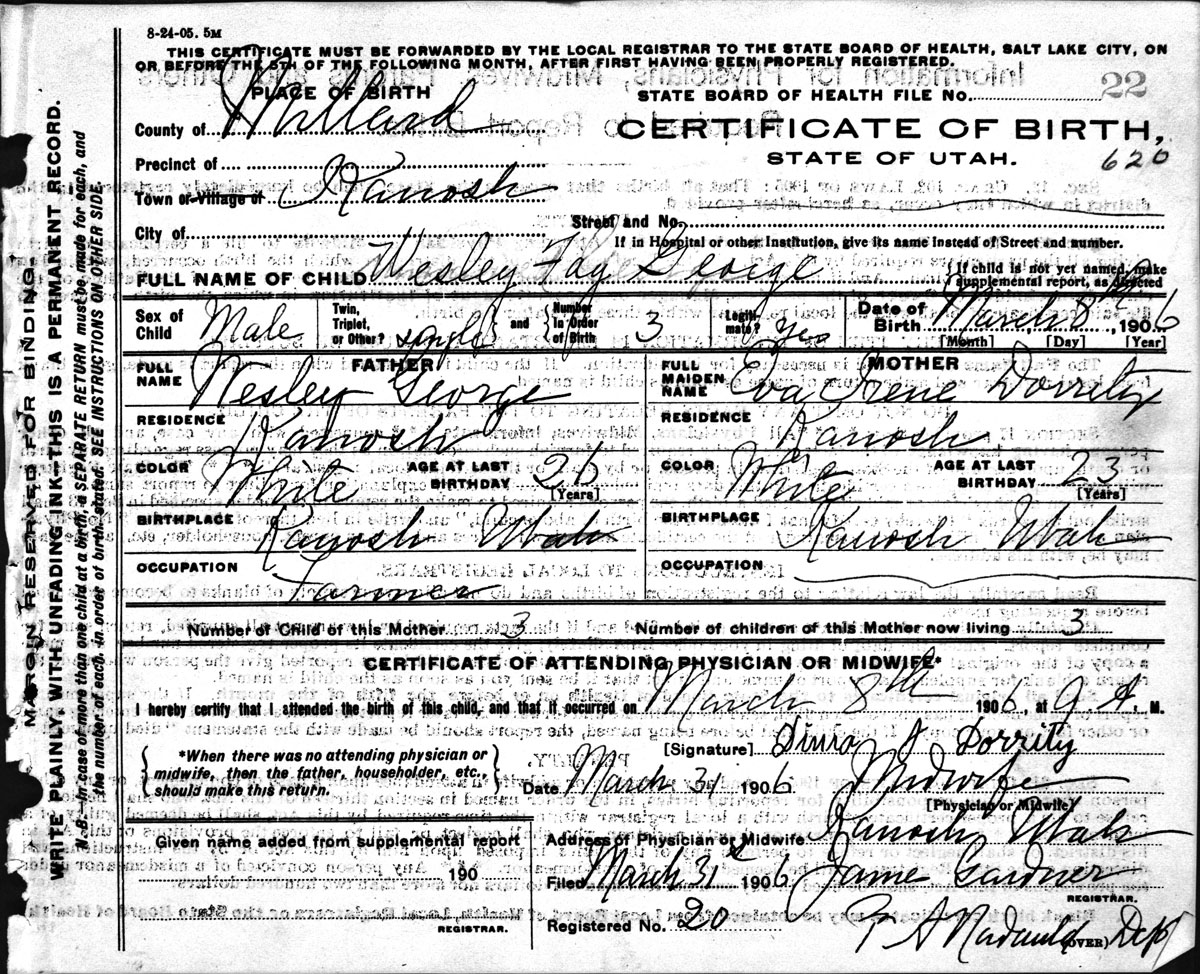 8-24-05. 5M
THIS CERTIFICATE MUST BE FORWARDED BY THE LOCAL REGISTRAR TO THE STATE BOARD OF HEALTH, SALT LAKE CITY, ON
OR BEFORE THE 5TH OF THE FOLLOWING MONTH, AFTER FIRST HAVING BEEN PROPERLY REGISTERED.
PLACE OF BIRTH
STATE BOARD OF HEALTH FILE No. 22
County of Millard
CERTIFICATE OF BIRTH,
STATE OF UTAH.
620
Precinct of
Town or Village of Kanosh
City of
Street and No.
If in Hospital or other Institution, give its name instead of Street and number.
FULL NAME OF CHILD Wesley Fay George
{If child is not yet named, make supplemental report, as directed
Sex of Child Male
Twin, Triplet, or Other? single} and {Number in Order of Birth 3
Legitimate? Yes
Date of Birth March 8th, 1906
[Month] [Day] [Year]
FATHER
FULL NAME Wesley George
RESIDENCE Kanosh
COLOR White AGE AT LAST BIRTHDAY 26 [Years]
BIRTHPLACE Kanosh Utah
OCCUPATION Farmer
MOTHER
FULL MAIDEN NAME Eva Irene Dorrity
RESIDENCE Kanosh
COLOR White AGE AT LAST BIRTHDAY 23 [Years]
BIRTHPLACE Kanosh Utah
OCCUPATION
Number of Child of this Mother 3 Number of children of this Mother now living 3
CERTIFICATE OF ATTENDING PHYSICIAN OR MIDWIFE*
I hereby certify that I attended the birth of this child, and that it occurred on March 8th 1906, at 9 A. M.
{*When there was no attending physician or midwife, then the father, householder, etc., should make this return.}
[Signature] Dorrity
Date March 31 1906 Midwife
[Physician or Midwife]
Address of Physician or Midwife Kanosh Utah
Given name added from supplemental report
190
REGISTRAR.
Filed March 31st 1906 Jame Gardner
REGISTRAR.
Registered No. 20
(OVER) Dept
MARGIN RESERVED FOR BINDING.
WRITE PLAINLY, WITH UNFADING INK—THIS IS A PERMANENT RECORD.
N. B.—In case of more than one child at a birth, a SEPARATE RETURN must be made for each, and
the number of each, in order of birth, stated. SEE INSTRUCTIONS ON OTHER SIDE.